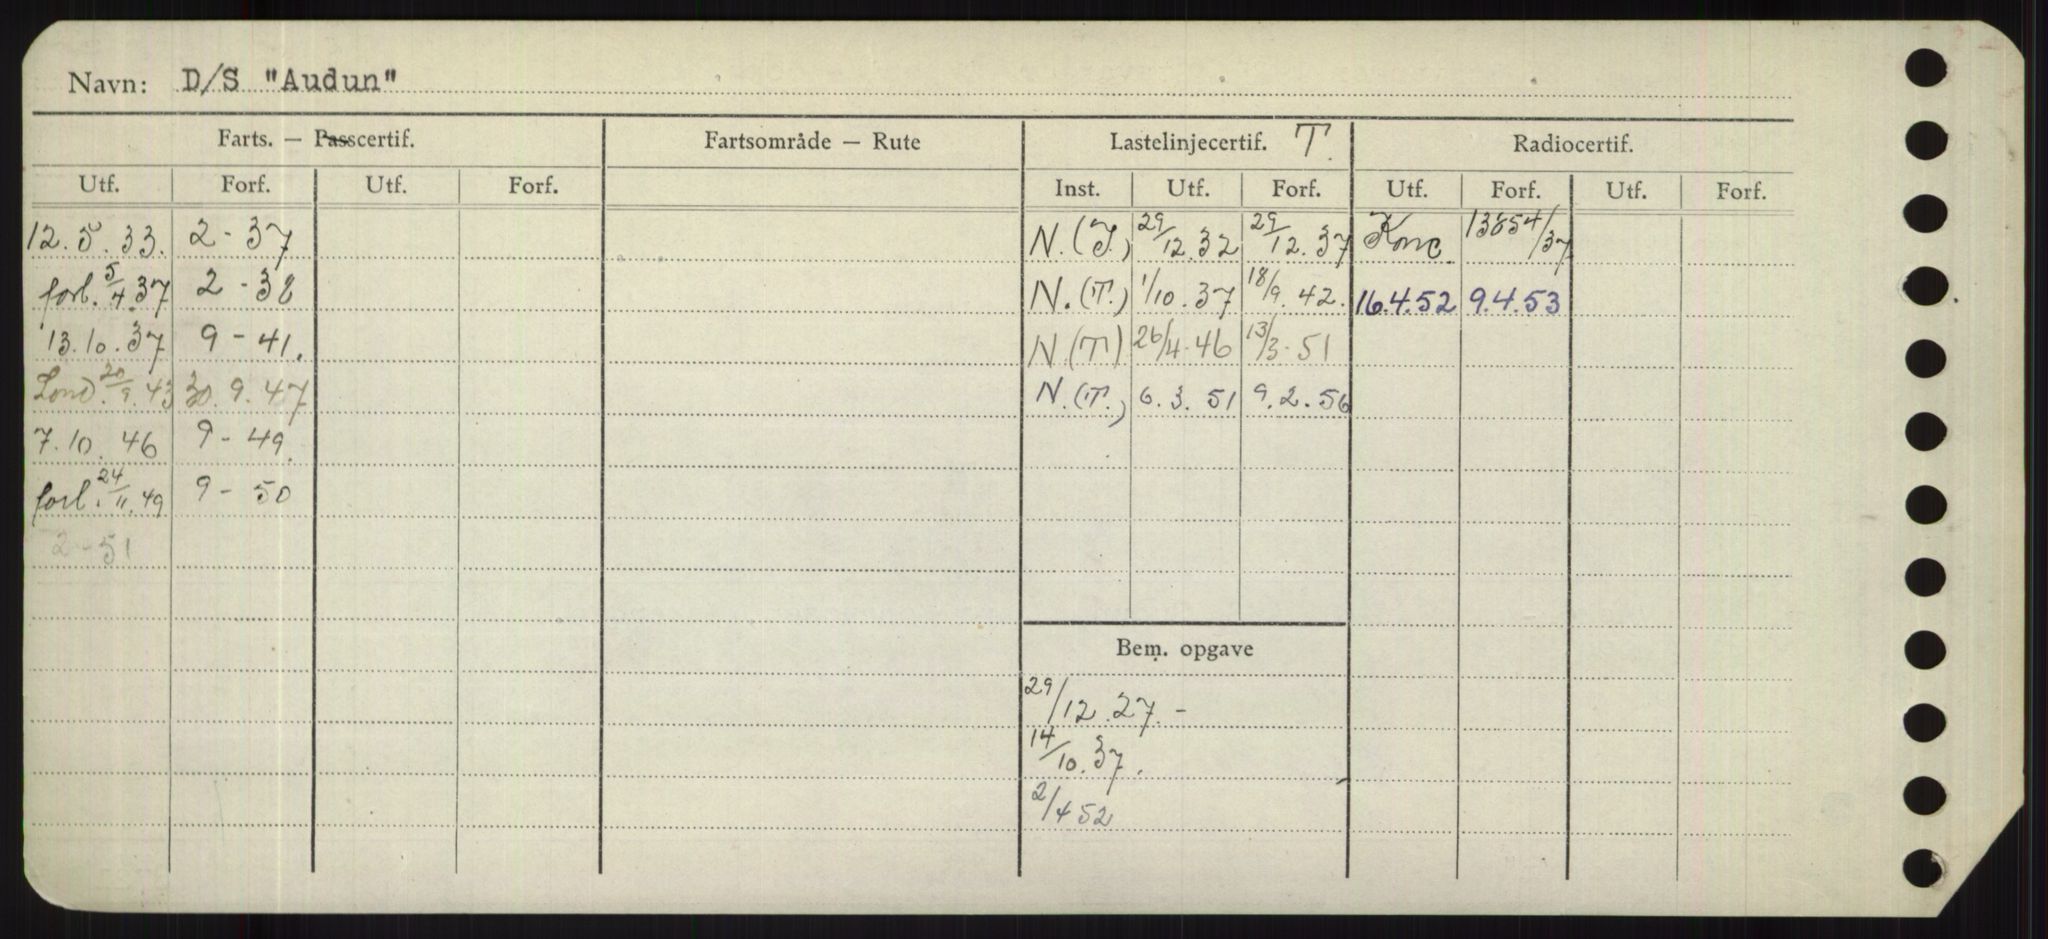 Navn: D/S "Audun"
Farts. — Passcertif. Fartsområde — Rute Lastelinjecertif. T. Radiocertif.
Utf. Forf. Utf. Forf. Inst. Utf. Forf. Utf. Forf. Utf. Forf.
12.5.33. 2-37 N.(T.) 29/12.32 29/12.37 Konc. 13854/37
forl. 5/4.37 2-38 N.(T.) 1/10.37 18/9.42. 16.4.52 9.4.53
13.10.37 9-41. N.(T) 26/4.46 13/3.51
Lond. 20/9.43 30.9.47 N.(T.) 6.3.51 9.2.56
7.10.46 9-49.
forl. 24/11.49 9-50
2-51
Bem. opgave
29/12.27.-
14/10.37.
2/4 52